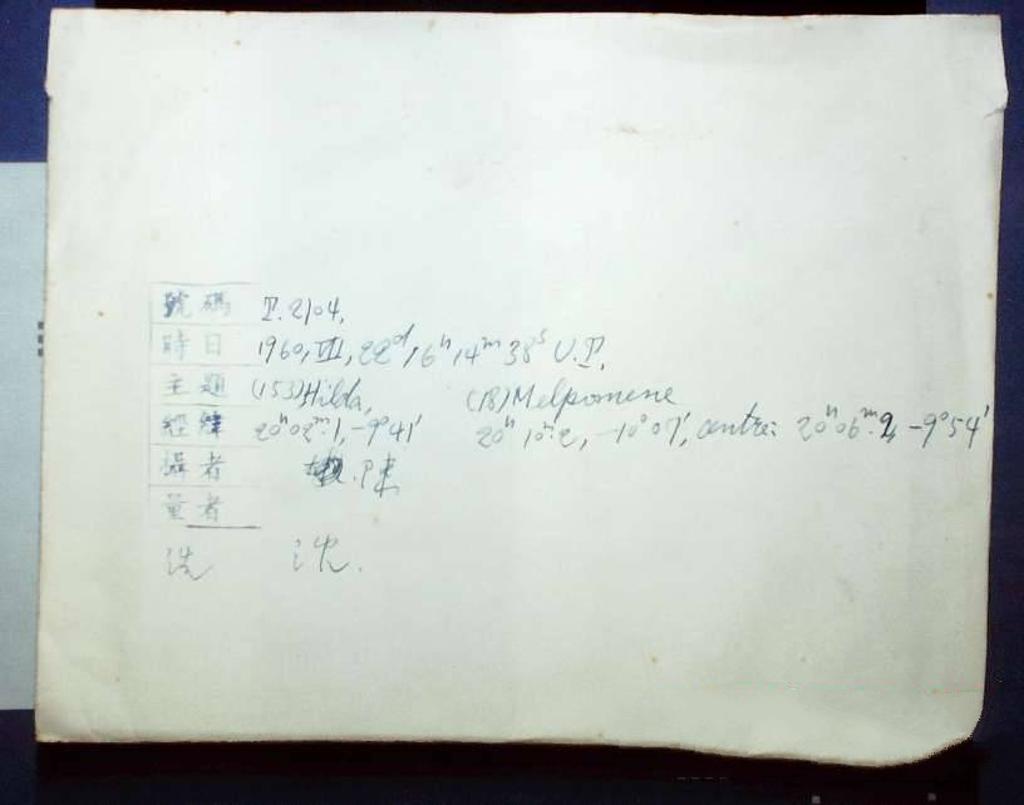 號碼 T. 2104.
時日 1960, VII, 22ᵈ, 16ʰ, 14ᵐ 38ˢ U.T.
主題 (153) Hilda, (18) Melpomene
經緯 20ʰ02ᵐ.1, -9°41′ 20ʰ10ᵐ.2, -10°07′, centre: 20ʰ06ᵐ.2, -9°54′
攝者 陳
量者
洗 沈.